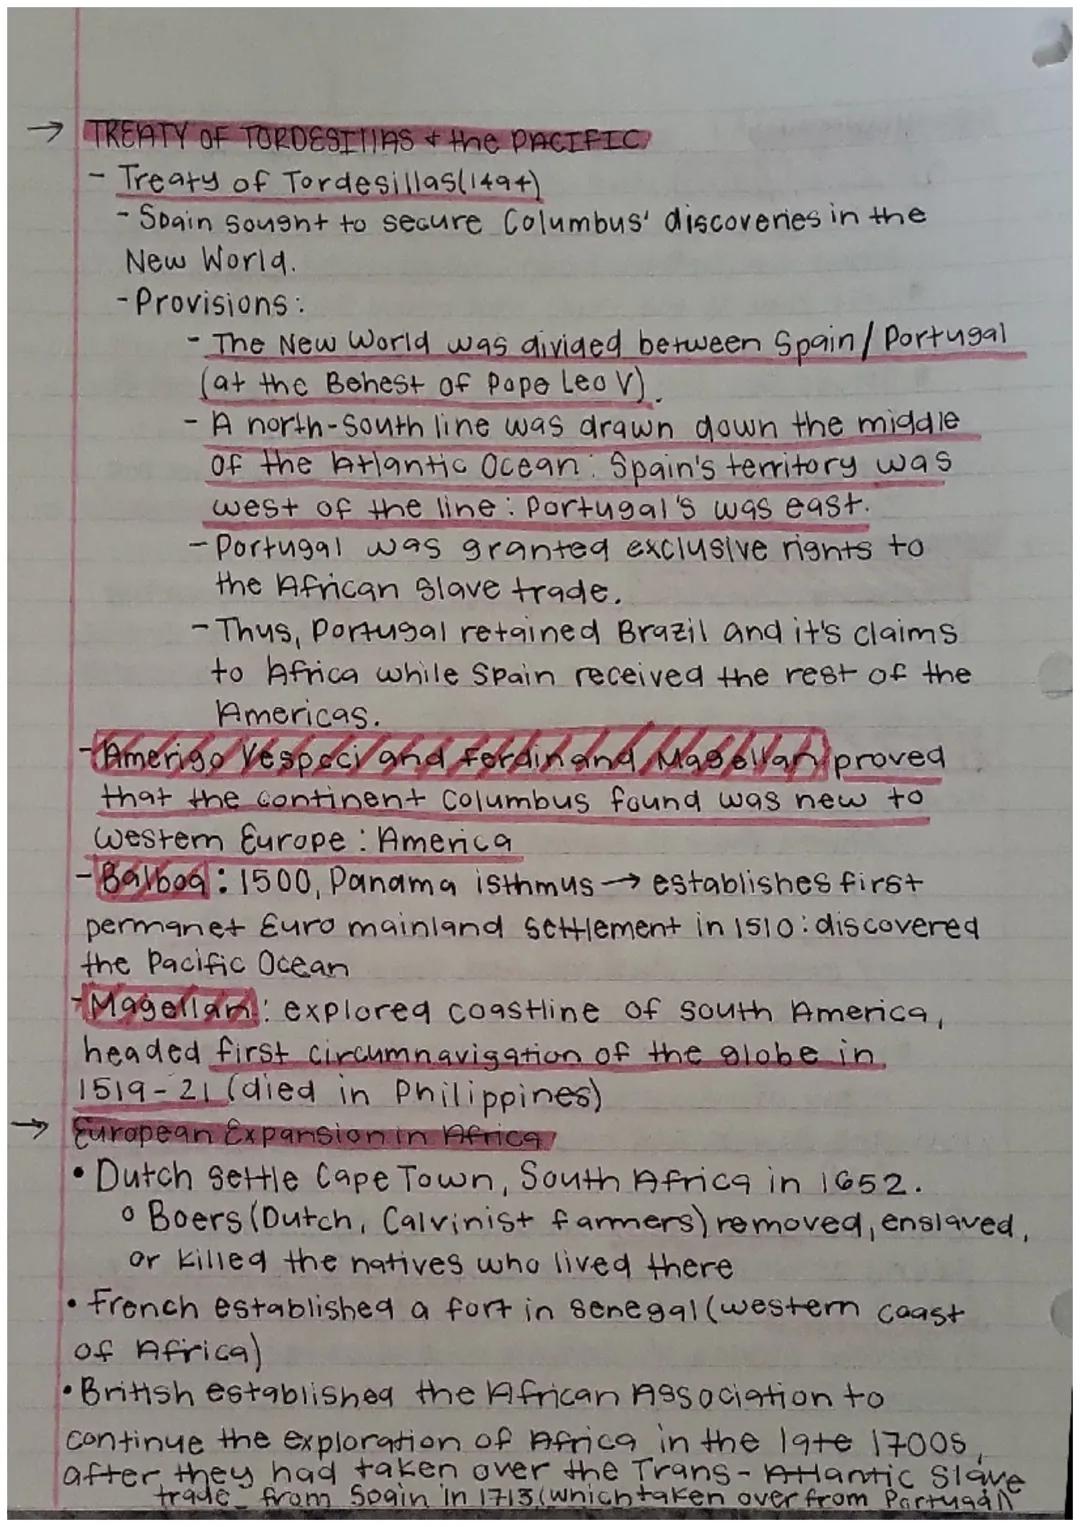 → TREATY OF TORDESILLAS & the PACIFIC
- Treaty of Tordesillas (1494)
- Spain sought to secure Columbus' discoveries in the
New World.
- Provisions:
- The New World was divided between Spain / Portugal
(at the Behest of Pope Leo V).
- A north-south line was drawn down the middle
of the Atlantic Ocean: Spain's territory was
west of the line: Portugal's was east.
- Portugal was granted exclusive rights to
the African slave trade.
- Thus, Portugal retained Brazil and it's claims
to Africa while Spain received the rest of the
Americas.
- Amerigo Vespoci and Ferdinand Magellan proved
that the continent Columbus found was new to
western Europe: America
- Balboa: 1500, Panama isthmus → establishes first
permanet Euro mainland settlement in 1510: discovered
the Pacific Ocean
- Magellan: explored coastline of South America,
headed first circumnavigation of the globe in
1519-21 (died in Philippines)
→ European Expansion in Africa
• Dutch settle Cape Town, South Africa in 1652.
° Boers (Dutch, Calvinist farmers) removed, enslaved,
or killed the natives who lived there
• French established a fort in Senegal (western coast
of Africa)
• British established the African Association to
continue the exploration of Africa in the late 1700s,
after they had taken over the Trans-Atlantic Slave
trade from Spain in 1713 (which taken over from Portugal)